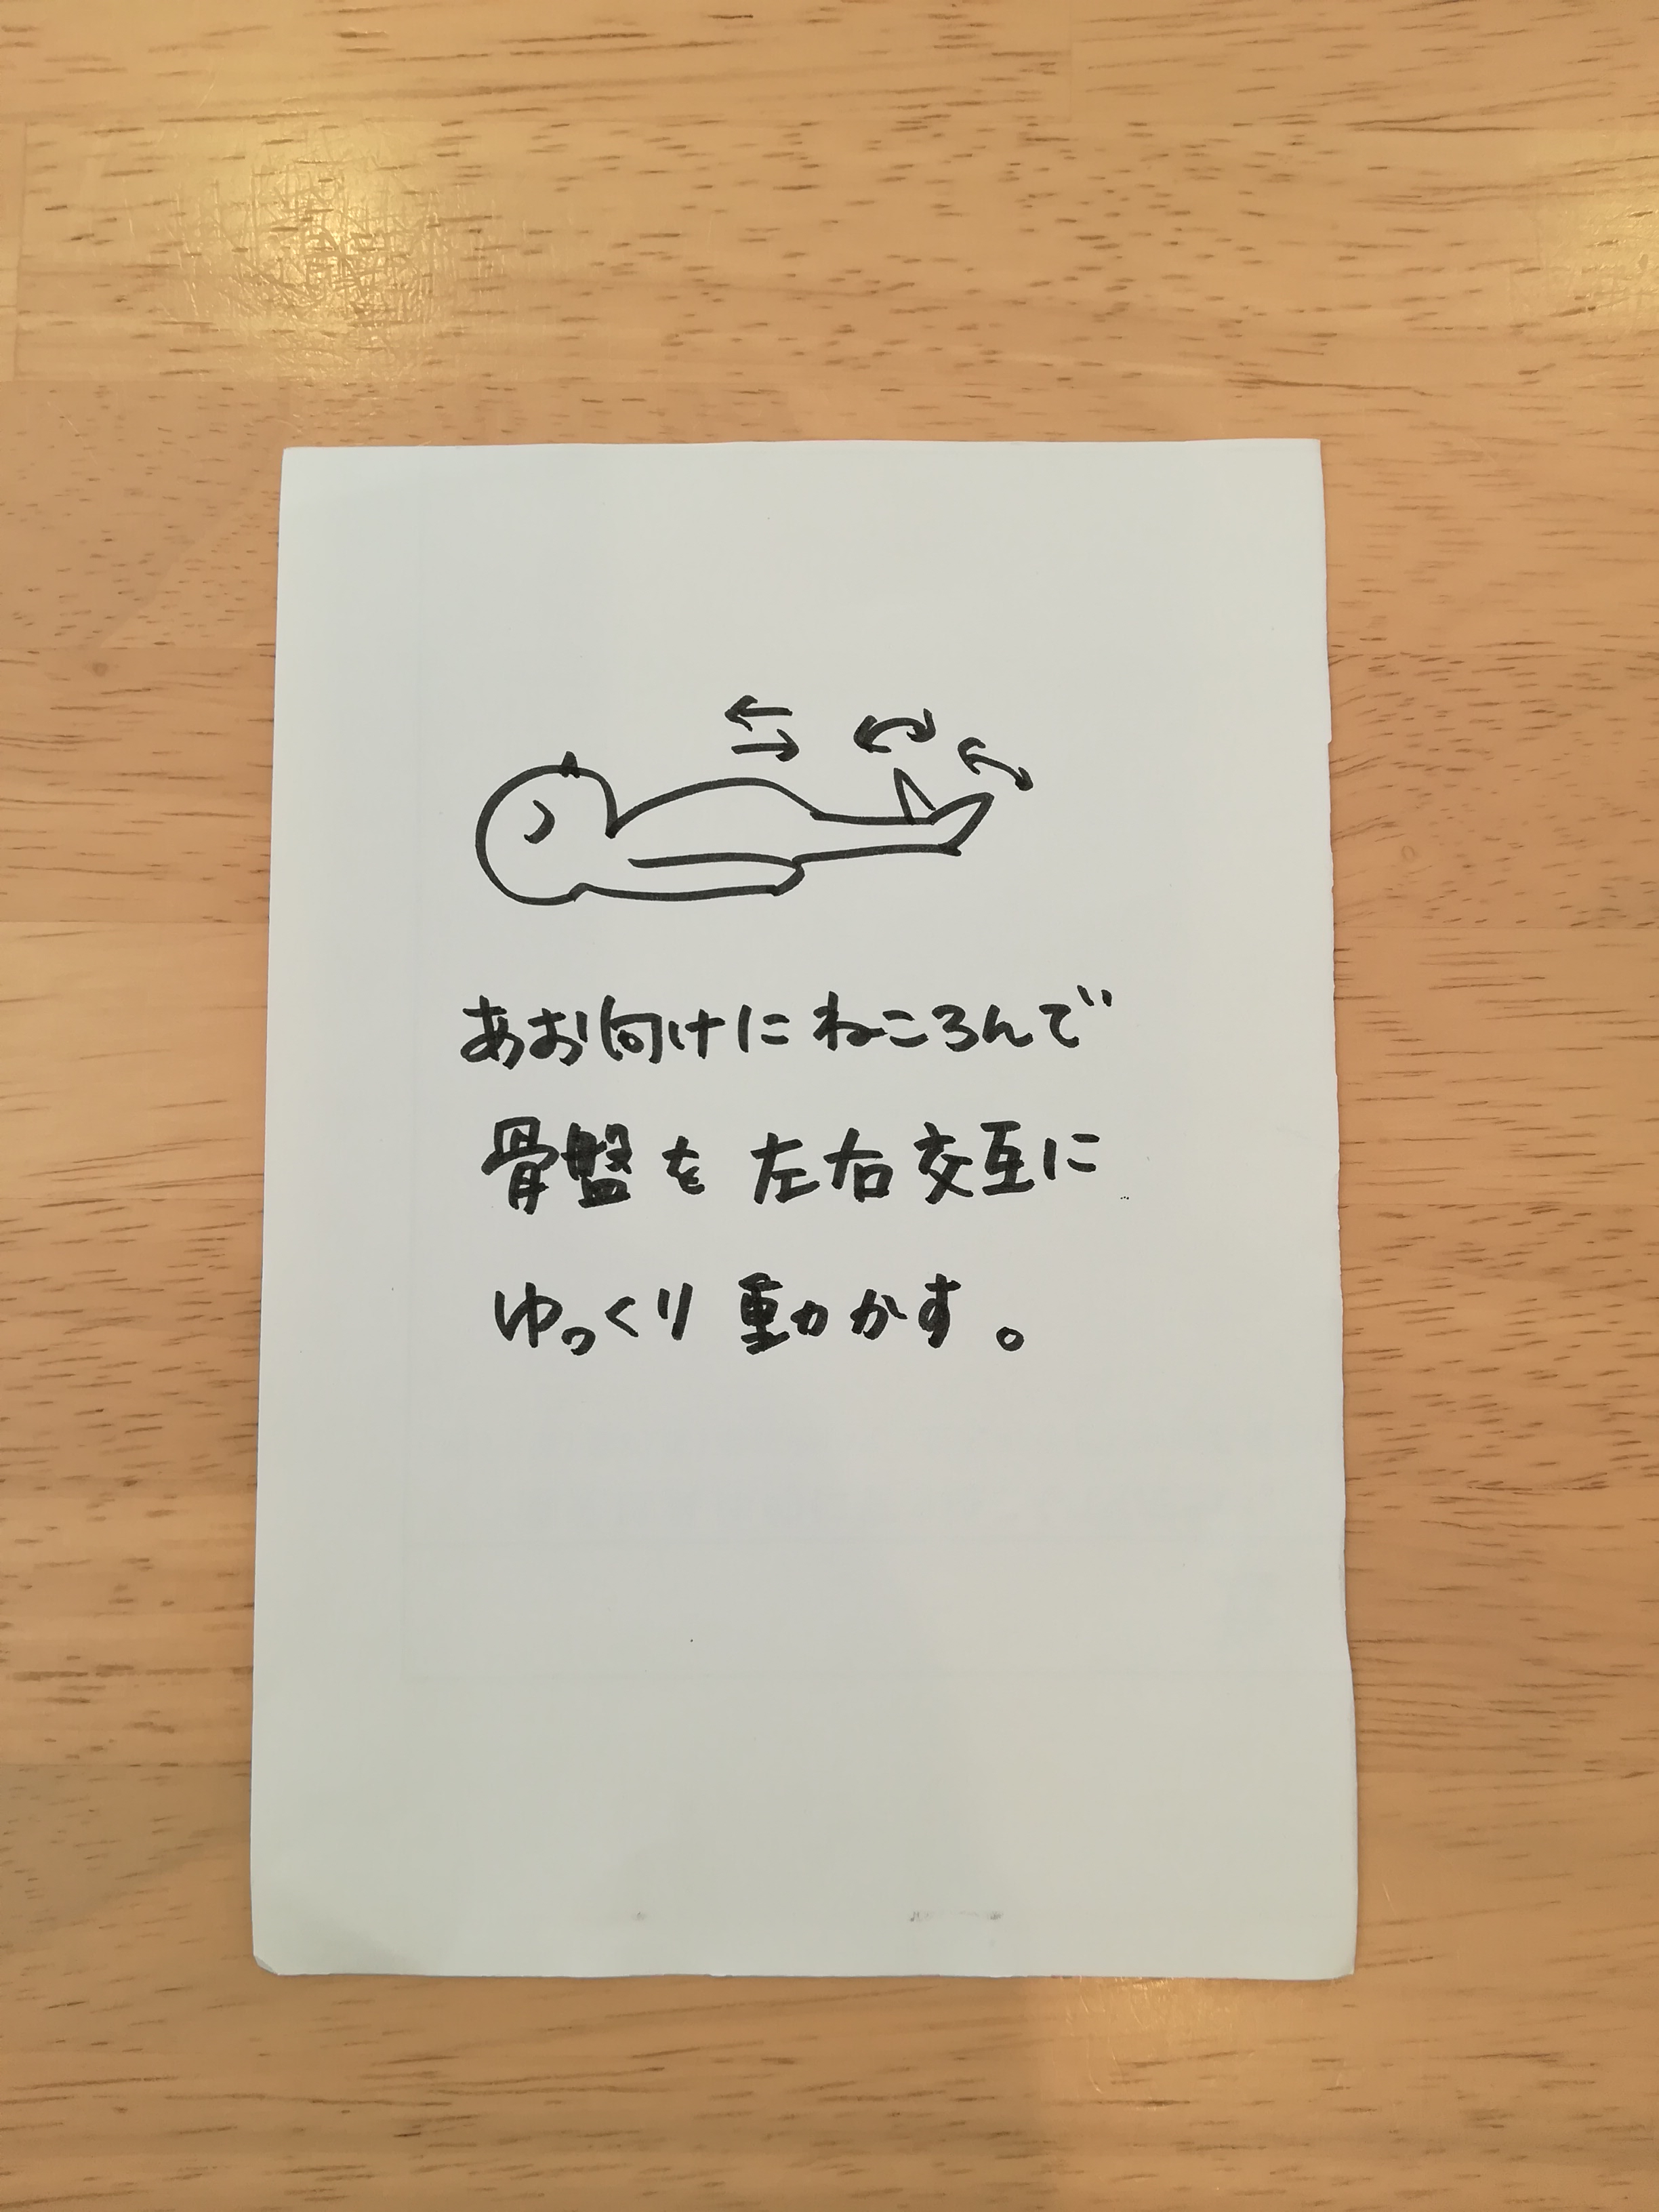 あお向けにねころんで
骨盤を左右交互に
ゆっくり動かす。